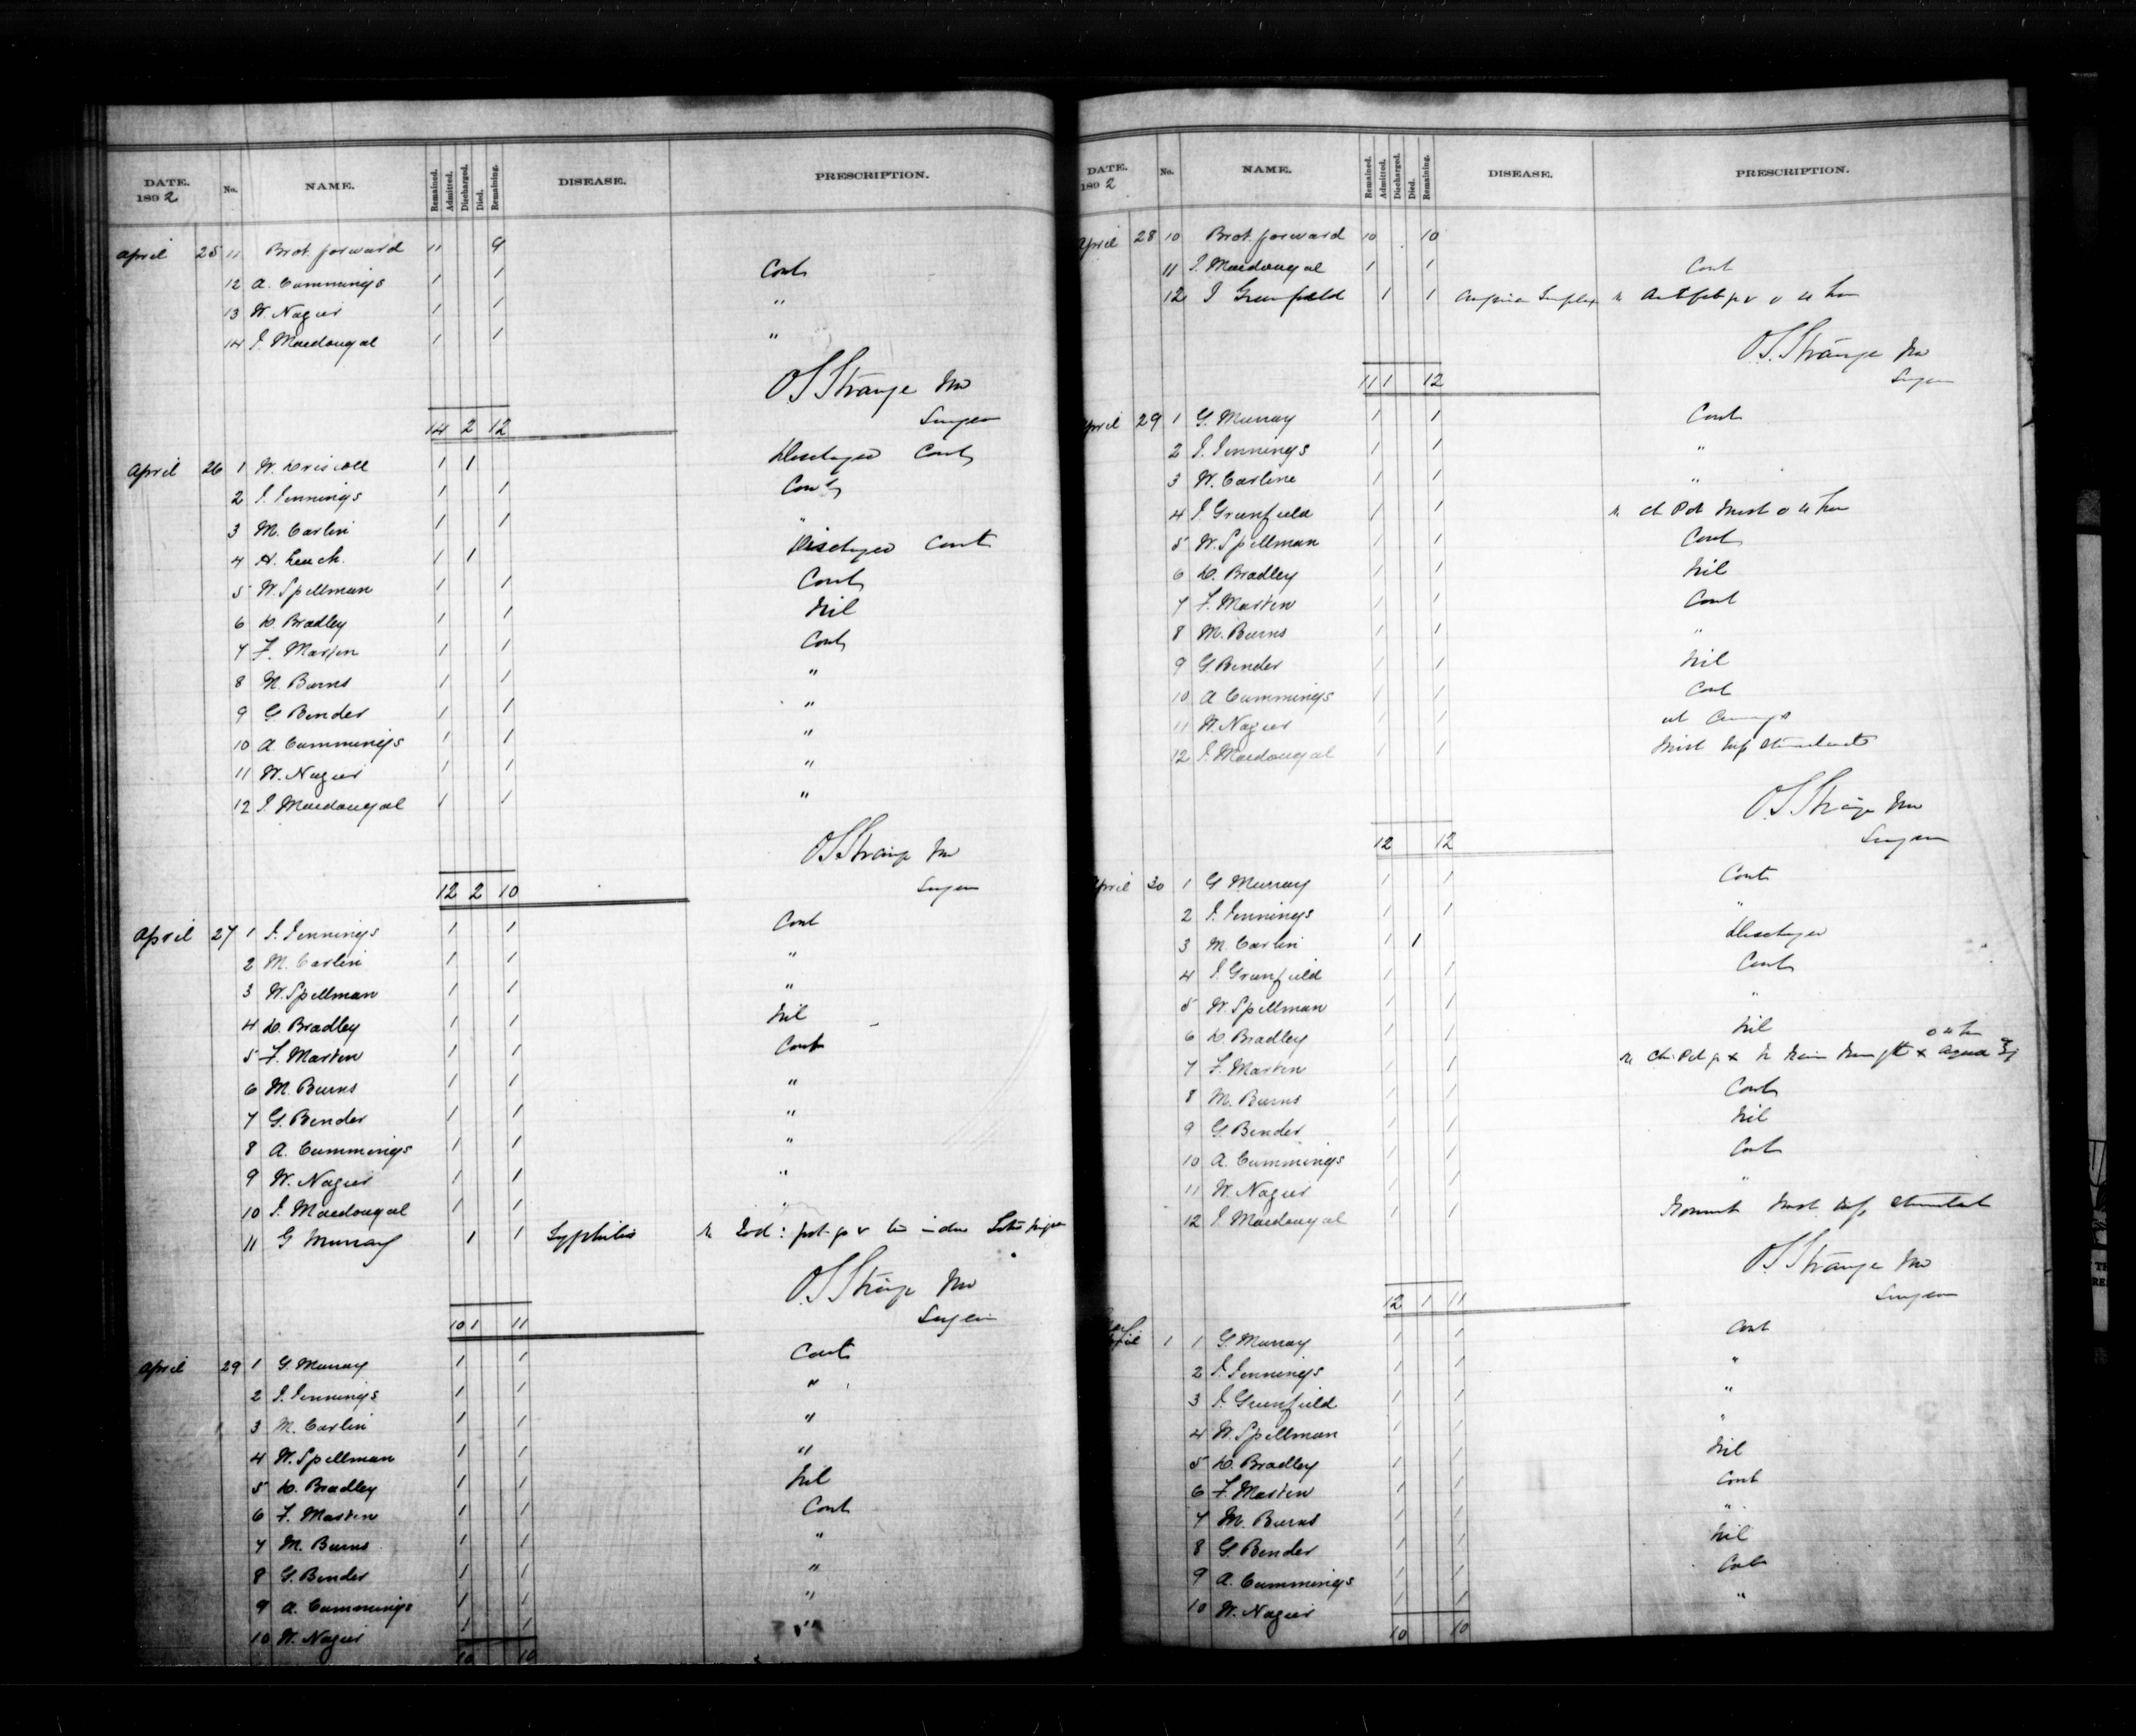 DATE. 1892 No. NAME. Remained. Admitted. Discharged. Died. Remaining. DISEASE. PRESCRIPTION.
April 25 11 Brot. forward 11 9
12 A. Cummings 1 1 Cont
13 W. Nagier 1 1 "
14 J. Macdougal 1 1 "
O S Strange MD
Surgeon
14 2 12
April 26 1 W. Driscoll 1 1 Discharged Cont
2 J. Jennings 1 1 Cont
3 M. Carlin 1 1 "
4 H. Leuch. 1 1 Discharged Cont
5 W. Spellman 1 1 Cont
6 D. Bradley 1 1 Nil
7 F. Marten 1 1 Cont
8 M. Burns 1 1 "
9 G. Bender 1 1 "
10 A. Cummings 1 1 "
11 W. Nagier 1 1 "
12 J Macdougal 1 1 "
O S Strange MD
Surgeon
12 2 10
April 27 1 J. Jennings 1 1 Cont
2 M. Carlin 1 1 "
3 W. Spellman 1 1 "
4 D. Bradley 1 1 Nil
5 F. Marten 1 1 Cont
6 M. Burns 1 1 "
7 G. Bender 1 1 "
8 A. Cummings 1 1 "
9 W. Nagier 1 1 "
10 J. Macdougal 1 1 "
11 G Murray 1 1 Syphilis
O S Strange MD
Surgeon
10 1 11
April 29 1 G. Murray 1 1 Cont
2 J. Jennings 1 1 "
3 M. Carlin 1 1 "
4 W. Spellman 1 1 "
5 D. Bradley 1 1 Nil
6 F. Marten 1 1 Cont
7 M. Burns 1 1 "
8 G. Bender 1 1 "
9 A. Cummings 1 1 "
10 W. Nagier 1 1 "
10 10
DATE. 1892 No. NAME. Remained. Admitted. Discharged. Died. Remaining. DISEASE. PRESCRIPTION.
April 28 10 Brot. forward 10 10
11 J. Macdougal 1 1 Cont
12 J Greenfield 1 1
O S Strange MD
Surgeon
11 1 12
April 29 1 G. Murray 1 1 Cont
2 J. Jennings 1 1 "
3 W. Carline 1 1 "
4 J Greenfield 1 1
5 W. Spellman 1 1 Cont
6 D. Bradley 1 1 Nil
7 F. Marten 1 1 Cont
8 M. Burns 1 1 "
9 G. Bender 1 1 Nil
10 A Cummings 1 1 Cont
11 W. Nagier 1 1
12 J. Macdougal 1 1
O S Strange MD
Surgeon
12 12
April 30 1 G Murray 1 1 Cont
2 J. Jennings 1 1 "
3 M. Carlin 1 1 Discharged
4 J. Greenfield 1 1 Cont
5 W. Spellman 1 1 "
6 D. Bradley 1 1 Nil
7 F. Marten 1 1
8 M. Burns 1 1 Cont
9 G Bender 1 1 Nil
10 A. Cummings 1 1 Cont
11 W. Nagier 1 1 "
12 J. Macdougal 1 1
O S Strange MD
Surgeon
12 1 11
April 1 1 G. Murray 1 1 Cont
2 J. Jennings 1 1 "
3 J. Greenfield 1 1 "
4 W. Spellman 1 1 "
5 D. Bradley 1 1 Nil
6 F. Marten 1 1 Cont
7 M. Burns 1 1 "
8 G. Bender 1 1 Nil
9 A. Cummings 1 1 Cont
10 W. Nagier 1 1 "
10 10